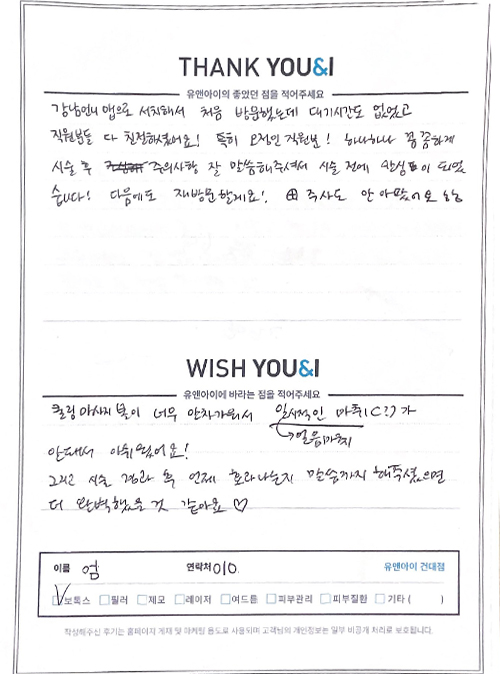 THANK YOU&I
유앤아이의 좋았던 점을 적어주세요
강남언니 앱으로 서치해서 처음 방문했는데 대기시간도 없었고
직원분들 다 친절하셨어요! 특히 직원분! 하나하나 꼼꼼하게
시술 후 주의사항 잘 말씀해주셔서 시술 전에 안심이 되었
습니다! 다음에도 재방문할게요! 주사도 안 아팠어요 ㅎㅎ
WISH YOU&I
유앤아이에 바라는 점을 적어주세요
쿨링마사지볼이 너무 안차가워서 일시적인 마취(?)가
→얼음마취
안돼서 아쉬웠어요!
그리고 시술 경과 후 언제 효과나는지 말씀까지 해주셨으면
더 완벽했을 것 같아요 ♡
이름 엄 연락처 010. 유앤아이 건대점
보톡스 필러 제모 레이저 여드름 피부관리 피부질환 기타 ( )
작성해주신 후기는 홈페이지 게재 및 마케팅 용도로 사용되며 고객님의 개인정보는 일부 비공개 처리로 보호됩니다.